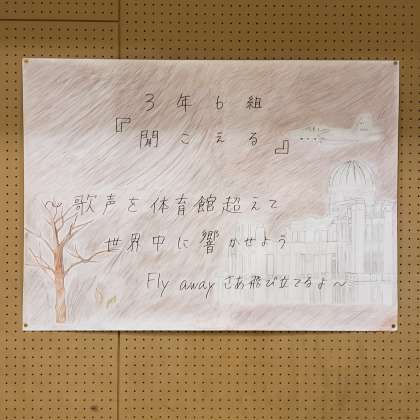 3年6組
『聞こえる』
~歌声を体育館超えて
世界中に響かせよう
Fly away さあ飛び立てるよ~